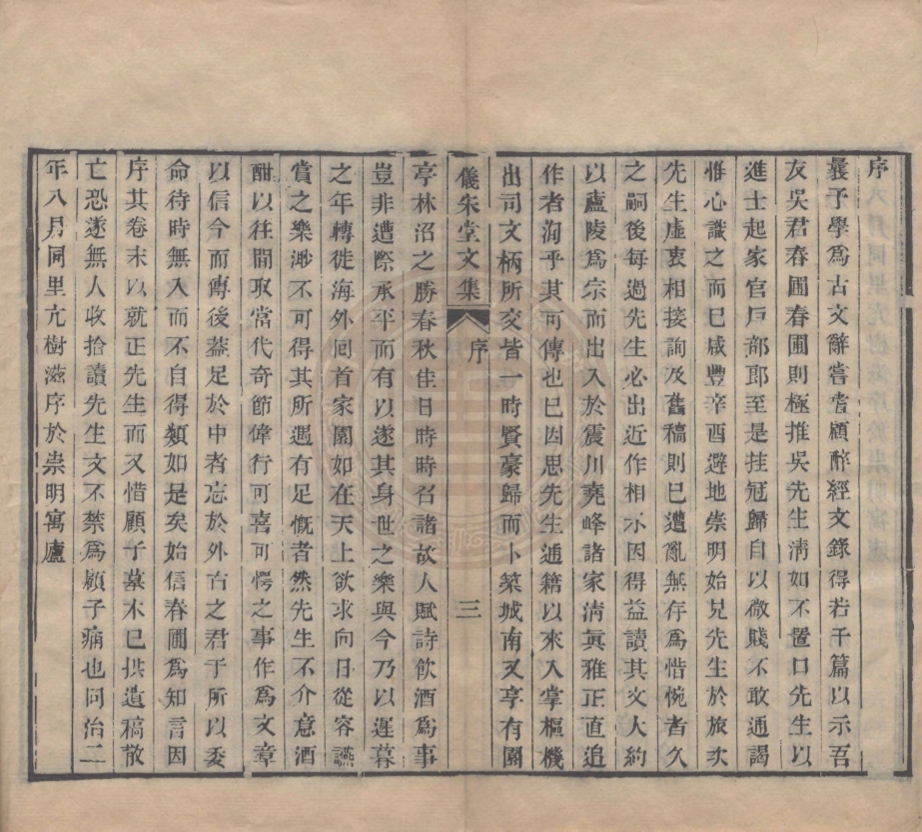 序
曩予學爲古文辭嘗耆顧醉經文錄得若干篇以示吾
友吳君春圃春圃則極推吳先生淸如不置口先生以
進士起家官戶部郎至是挂冠歸自以微賤不敢通謁
惟心識之而已咸豐辛酉避地崇明始見先生於旅次
先生虛衷相接詢及舊稿則已遭亂無存爲惜惋者久
之嗣後每過先生必出近作相示因得益讀其文大約
以廬陵爲宗而出入於震川堯峰諸家淸眞雅正直追
作者洵乎其可傳也已因思先生通籍以來入掌樞機
出司文柄所交皆一時賢豪歸而卜築城南又享有園
儀宋堂文集
序
三
亭林沼之勝春秋佳日時時召諸故人賦詩飮酒爲事
豈非遭際承平而有以遂其身世之樂與今乃以遲暮
之年轉徙海外囘首家園如在天上欲求向日從容讌
賞之樂渺不可得其所遇有足慨者然先生不介意酒
酣以往間取當代奇節偉行可喜可愕之事作爲文章
以信今而傳後蓋足於中者忘於外古之君子所以委
命待時無入而不自得類如是矣始信春圃爲知言因
序其卷末以就正先生而又惜顧子墓木已拱遺稿散
亡恐遂無人收拾讀先生文不禁爲顧子痛也同治二
年八月同里亢樹滋序於崇明寓廬